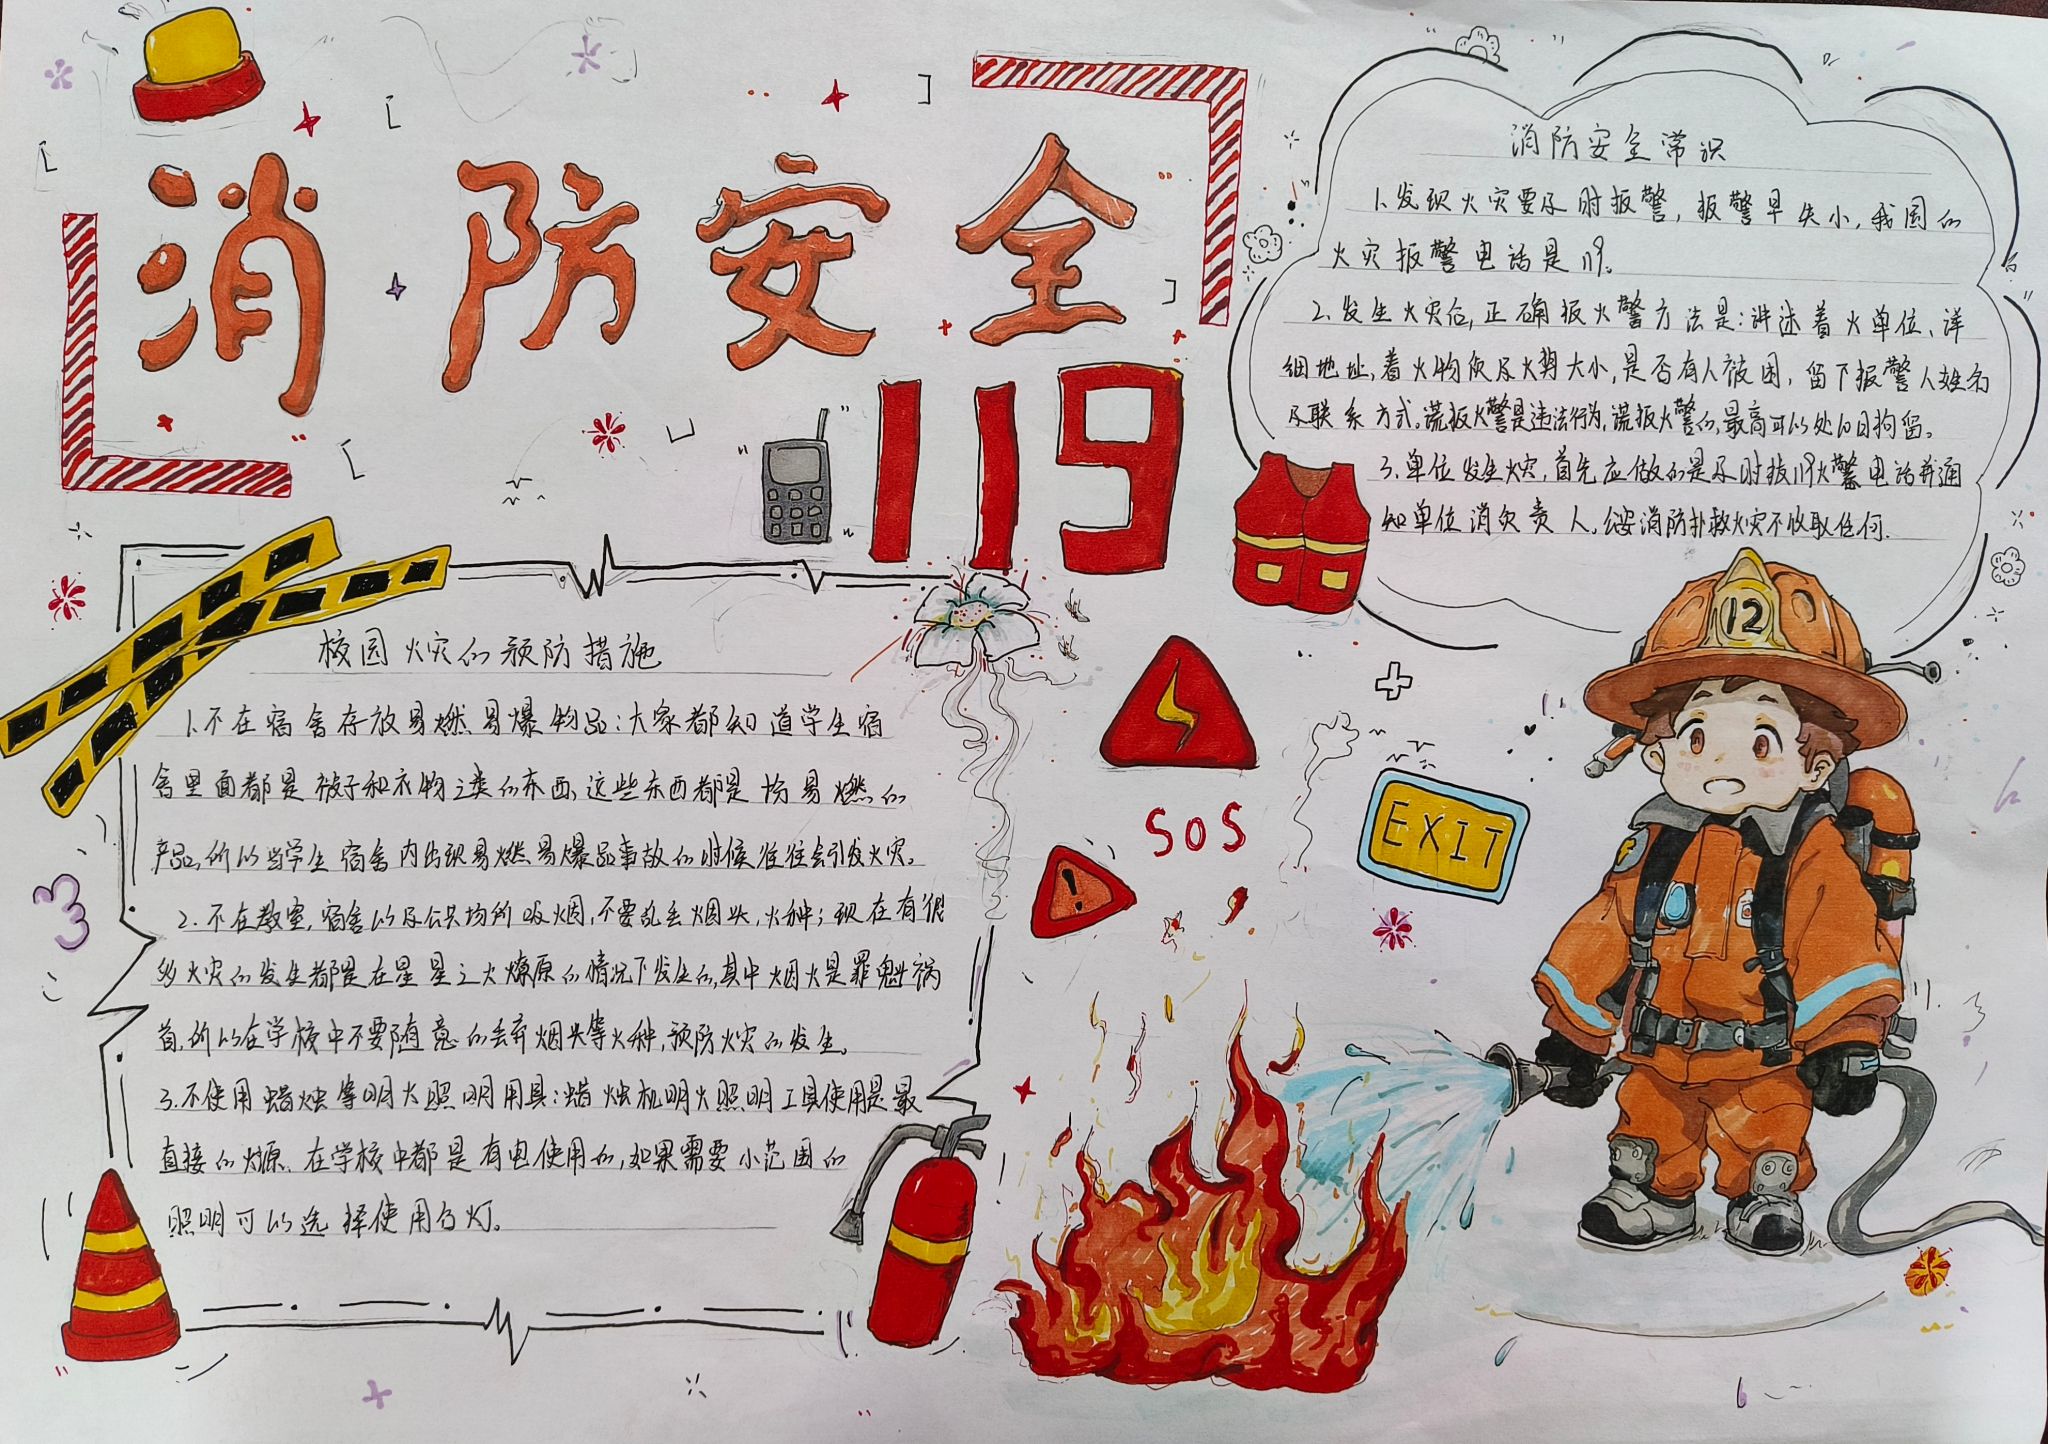 消防安全
119
消防安全常识
1.发现火灾要及时报警,报警早失小,我国的
火灾报警电话是119。
2.发生火灾后,正确报火警方法是:讲述着火单位、详
细地址,着火物质及火势大小,是否有人被困,留下报警人姓名
及联系方式。谎报火警是违法行为,谎报火警的,最高可以处10日拘留。
3.单位发生火灾,首先应做的是及时拨119火警电话并通
知单位消负责人。公安消防扑救火灾不收取任何.
12
校园火灾的预防措施
1.不在宿舍存放易燃易爆物品:大家都知道学生宿
舍里面都是被子和衣物之类的东西,这些东西都是易燃的
产品,所以当学生宿舍内出现易燃易爆品事故的时候往往会引发火灾。
2.不在教室,宿舍以及公共场所吸烟,不要乱丢烟头,火种;现在有很
多火灾的发生都是在星星之火燎原的情况下发生的,其中烟火是罪魁祸
首,所以在学校中不要随意的丢弃烟头等火种,预防火灾的发生。
3.不使用蜡烛等明火照明用具:蜡烛机明火照明工具使用是最
直接的燃源、在学校中都是有电使用的,如果需要小范围的
照明可以选择使用台灯。
SOS
EXIT